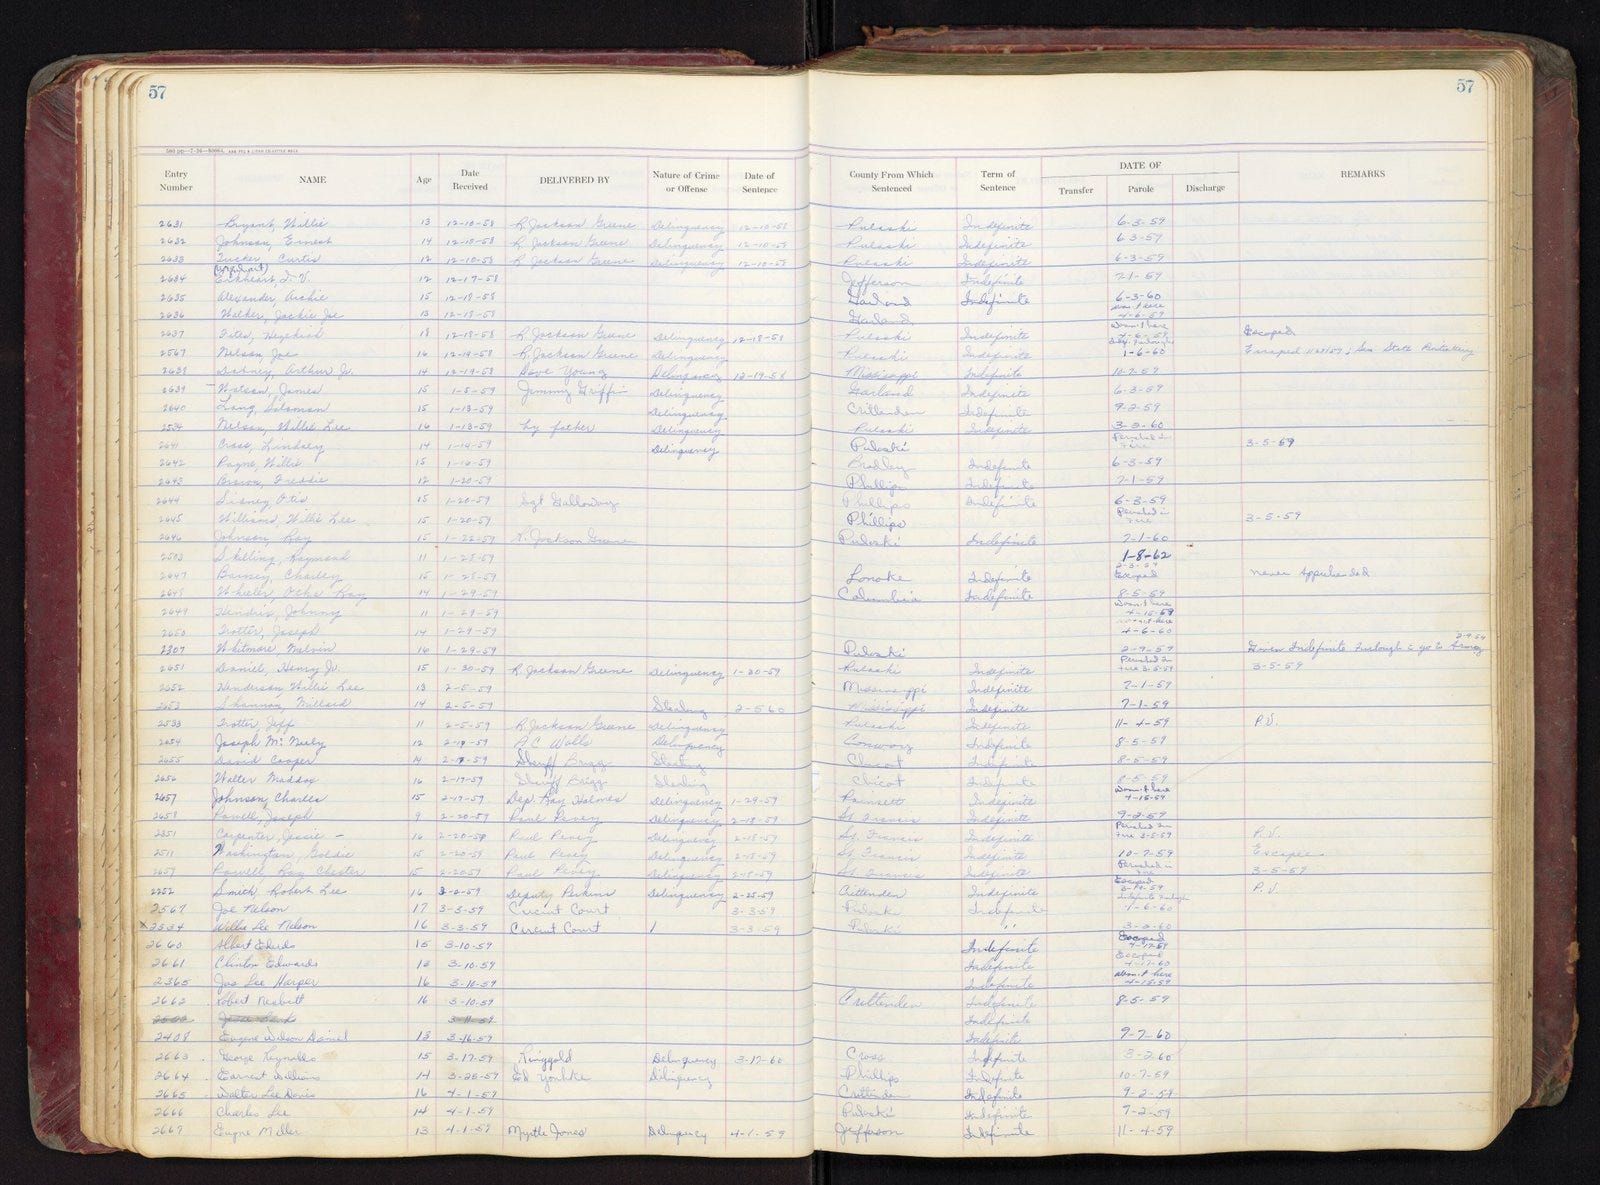 57
57
Entry Number NAME Age Date Received DELIVERED BY Nature of Crime or Offense Date of Sentence County From Which Sentenced Term of Sentence DATE OF Transfer Parole Discharge REMARKS
2631 Bryant, Willie 13 12-10-58 R Jackson Greene Delinquency 12-10-58 Pulaski Indefinite 6-3-59
2632 Johnson, Ernest 14 12-10-58 R Jackson Greene Delinquency 12-10-58 Pulaski Indefinite 6-3-59
2633 Tucker, Curtis 12 12-10-58 R Jackson Greene Delinquency 12-10-58 Pulaski Indefinite 6-3-59
2634 12 12-17-58 Jefferson Indefinite 7-1-59
2635 Alexander, Archie 15 12-18-58 Garland Indefinite 6-3-60
2636 Walker, Jackie Joe 13 12-18-58 Garland wasn't here 4-6-59
2637 18 12-18-58 R Jackson Greene Delinquency 12-18-58 Pulaski Indefinite wasn't here 4-6-59 Escaped
2567 Nelson, Joe 16 12-19-58 R Jackson Greene Delinquency Pulaski Indefinite 1-6-60 Escaped State Penitentiary
2638 Dabney, Arthur Jr. 14 12-19-58 Dave Young Delinquency 12-19-58 Mississippi Indefinite 10-7-59
2639 Watson, James 15 1-5-59 Jimmy Griffin Delinquency Garland Indefinite 6-3-59
2640 Long, Soloman 15 1-13-59 Delinquency Crittenden Indefinite 9-2-59
2534 Nelson, Willie Lee 16 1-13-59 by father Delinquency Pulaski Indefinite 3-3-60
2641 Cross, Lindsey 14 1-14-59 Delinquency Pulaski Perished in Fire 3-5-59
2642 Payne, Willie 15 1-16-59 Bradley Indefinite 6-3-59
2643 Brown, Freddie 12 1-20-59 Phillips Indefinite 7-1-59
2644 Sidney Otis 15 1-20-59 Sgt Galloway Phillips Indefinite 6-3-59
2645 Williams, Willie Lee 15 1-20-59 Phillips Perished in Fire 3-5-59
2646 Johnson, Roy 15 1-22-59 R. Jackson Greene Pulaski Indefinite 7-1-60
2503 Skilling, Raymond 11 1-28-59 1-8-62
2647 Barney, Charley 15 1-28-59 Lonoke Indefinite Escaped never Apprehended
2648 Wheeler, Ocha Ray 14 1-29-59 Columbia Indefinite 8-5-59
2649 Hendrix, Johnny 11 1-29-59 wasn't here 4-15-59
2650 Trotter, Joseph 14 1-29-59 wasn't here 4-6-60
2307 Whitmore, Melvin 16 1-29-59 Pulaski 2-9-59 Given Indefinite Furlough to go to Army
2651 Daniel, Henry Jr. 15 1-30-59 R Jackson Greene Delinquency 1-30-59 Pulaski Indefinite Perished In Fire 3-5-59 3-5-59
2652 Henderson, Willie Lee 13 2-5-59 Mississippi Indefinite 7-1-59
2653 Shannon, Millard 14 2-5-59 Stealing 2-5-60 Mississippi Indefinite 7-1-59
2533 Trotter, Jeff 11 2-5-59 R Jackson Greene Delinquency Pulaski Indefinite 11-4-59 P.V.
2654 Joseph McNeely 12 2-17-59 A C Walls Delinquency Conway Indefinite 8-5-59
2655 David Cooper 14 2-17-59 Sheriff Brigg Stealing Chicot Indefinite 8-5-59
2656 Walter Maddox 16 2-17-59 Sheriff Brigg Stealing Chicot Indefinite 8-5-59
2657 Johnson, Charles 15 2-17-59 Dep. Ray Holmes Delinquency 1-29-59 Poinsett Indefinite wasn't here 4-15-59
2658 Powell, Joseph 9 2-20-59 Paul Pevey Delinquency 2-18-59 St. Francis Indefinite 9-2-59
2351 Carpenter, Jessie - 16 2-20-59 Paul Pevey Delinquency 2-18-59 St. Francis Indefinite Perished In Fire 3-5-59 P.V.
2511 Washington, Goldie 15 2-20-59 Paul Pevey Delinquency 2-18-59 St. Francis Indefinite 10-7-59 Escapee
2659 Powell Roy Chester 15 2-20-59 Paul Pevey Delinquency 2-18-59 St. Francis Indefinite Perished in Fire 3-5-59
2252 Smith Robert Lee 16 3-2-59 Deputy Perkins Delinquency 2-25-59 Crittenden Indefinite Escaped P.V.
2567 Joe Nelson 17 3-3-59 Circuit Court 3-3-59 Pulaski Indefinite 1-6-60
x2534 Willie Lee Nelson 16 3-3-59 Circuit Court 3-3-59 Pulaski " 3-3-60
2660 Albert Edwards 15 3-10-59 Indefinite Escaped 4-17-59
2661 Clinton Edwards 13 3-10-59 Indefinite Escaped 4-17-60
2365 Jas Lee Harper 16 3-10-59 Indefinite wasn't here 4-15-59
2662 Robert Nesbitt 16 3-10-59 Crittenden Indefinite 8-5-59
3-11-59 Indefinite
2408 Eugene Wilson Daniel 13 3-16-59 Indefinite 9-7-60
2663 George Reynolds 15 3-17-59 Ringgold Delinquency 3-17-60 Cross Indefinite 3-2-60
2664 Earnest Williams 14 3-25-59 Ed Yonhke Delinquency Phillips Indefinite 10-7-59
2665 Walter Lee Jones 16 4-1-59 Crittenden Indefinite 9-2-59
2666 Charles Lee 14 4-1-59 Pulaski Indefinite 7-2-59
2667 Eugne Miller 13 4-1-59 Myrtle Jones Delinquency 4-1-59 Jefferson Indefinite 11-4-59